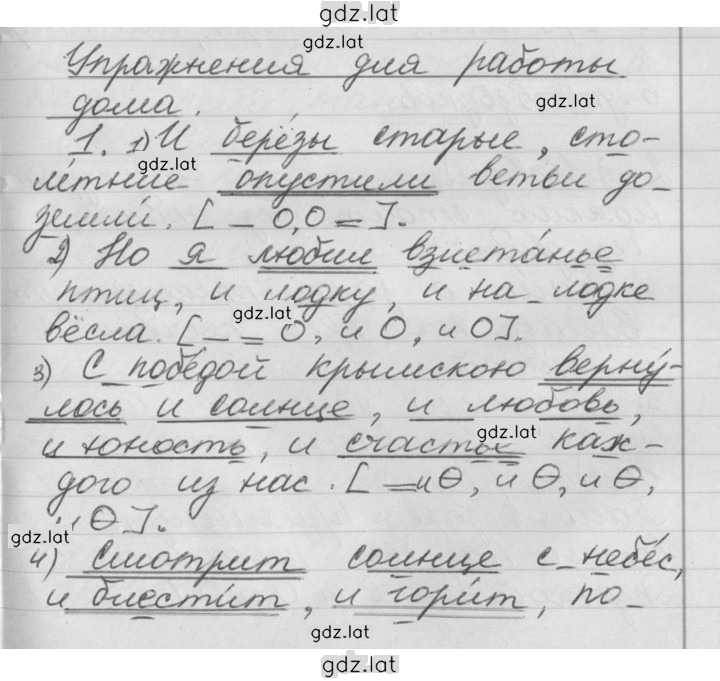 gdz.lat
gdz.lat
Упражнения для работы
дома.
gdz.lat
1. 1) И берёзы старые, сто-
gdz.lat
летние опустили ветви до
земли. [ – О, О = ].
2) Но я любил взлетанье
птиц, и лодку, и на лодке
gdz.lat
вёсла. [ – = О, и О, и О].
3) С победой крымскою верну-
лось и солнце, и любовь,
gdz.lat
и юность, и счастье каж-
дого из нас. [ = и О, и О, и О,
и О ].
gdz.lat
4) Смотрит солнце с небес,
и блестит, и горит, по-
gdz.lat
gdz.lat